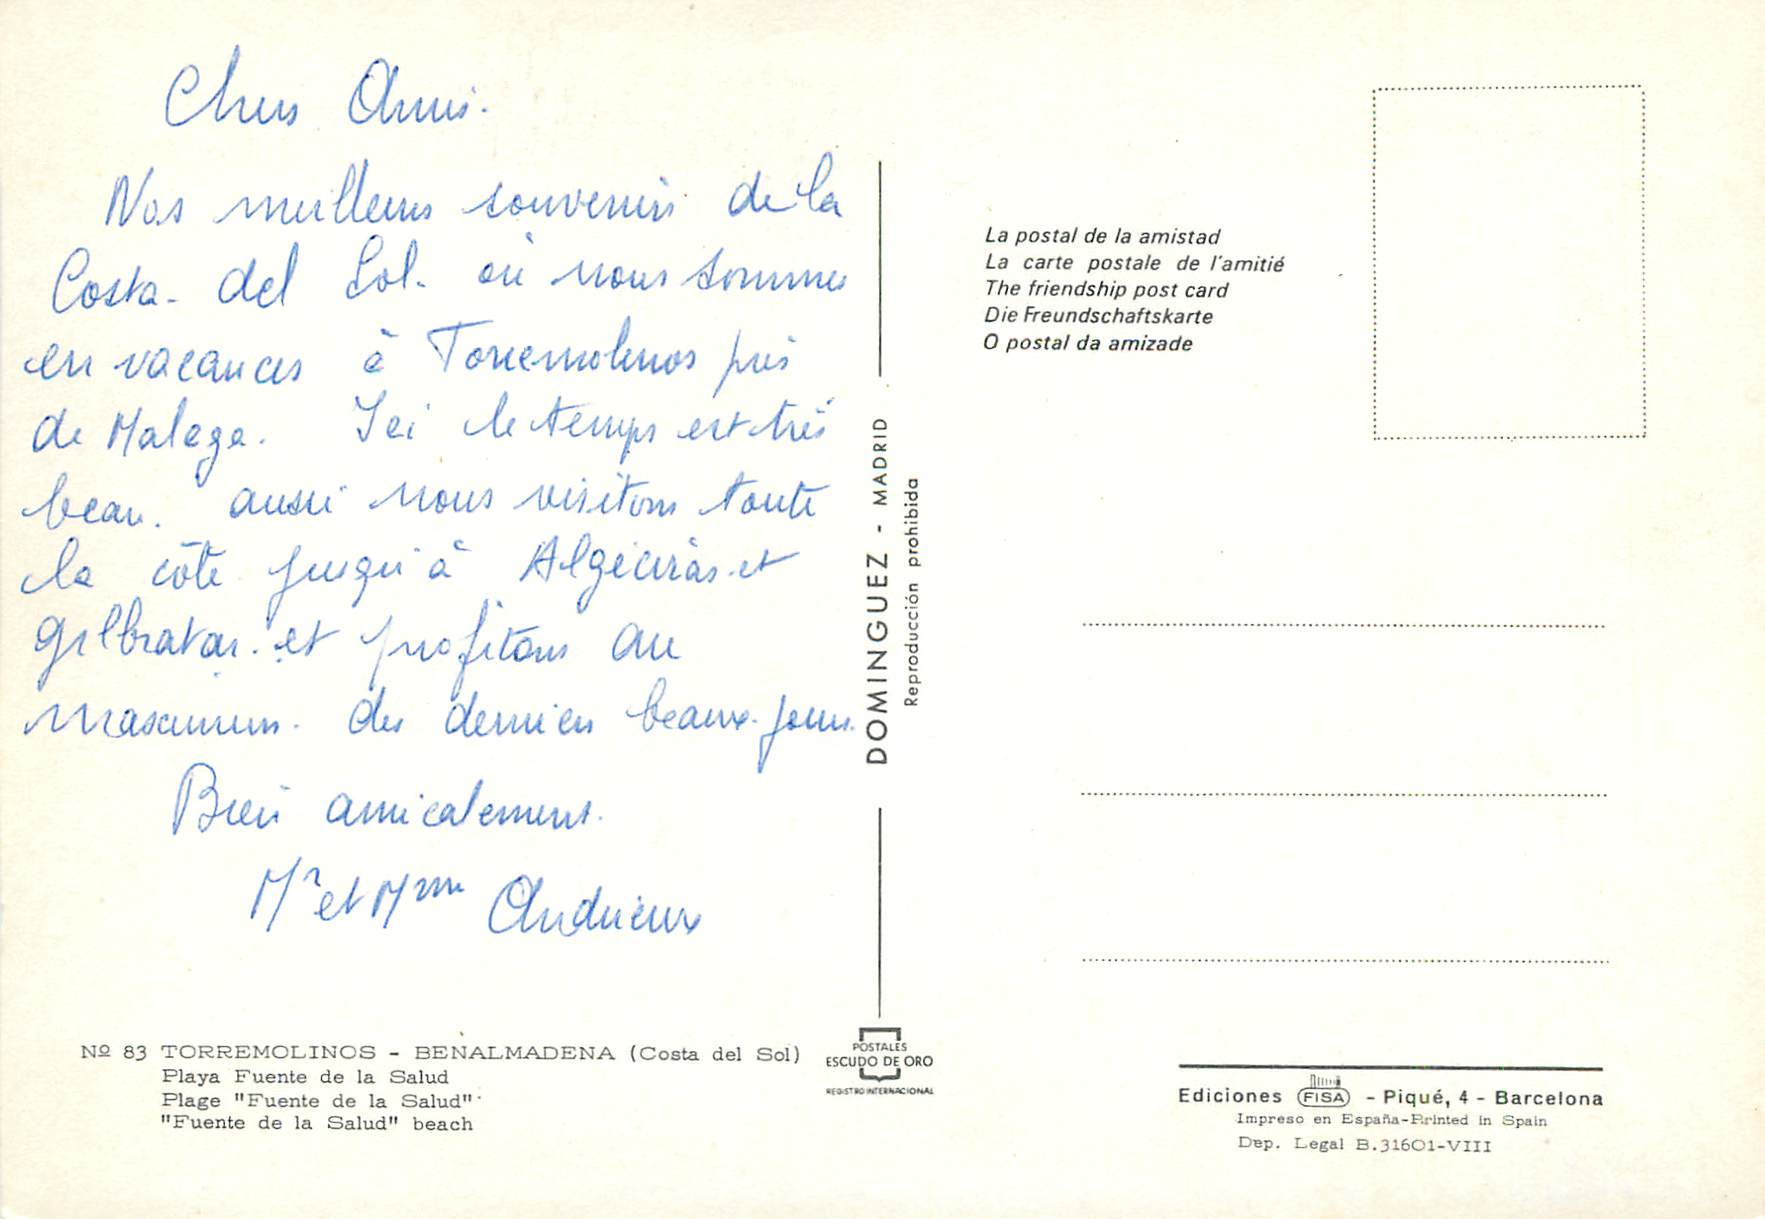 Chers Amis.
Nos meilleurs souvenirs de la
Costa - del Sol. où nous sommes
en vacances à Torremolinos près
de Malaga. Ici le temps est très
beau. aussi nous visitons toute
la côte jusqu'à Algéciras et
Gilbratar. et profitons au
maximum. des derniers beaux jours.
Bien amicalement.
Mr et Mme Andrieux
Nº 83 TORREMOLINOS - BENALMADENA (Costa del Sol)
Playa Fuente de la Salud
Plage "Fuente de la Salud"
"Fuente de la Salud" beach
DOMINGUEZ - MADRID
Reproducción prohibida
POSTALES
ESCUDO DE ORO
REGISTRO INTERNACIONAL
La postal de la amistad
La carte postale de l'amitié
The friendship post card
Die Freundschaftskarte
O postal da amizade
Ediciones FISA - Piqué, 4 - Barcelona
Impreso en España-Printed in Spain
Dep. Legal B.31601-VIII